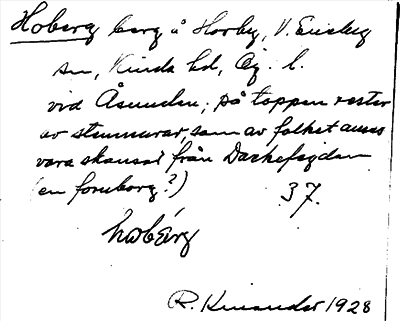 Hoberg berg å Horby, V. Eneby
sn, Kinda hd, Ög. l.
vid Åsunden; på toppen rester
av stenmurar, som av folket anses
vara skansar från Dackefejden
(en fornborg?) 37.
hωbærg
R. Kinander 1928